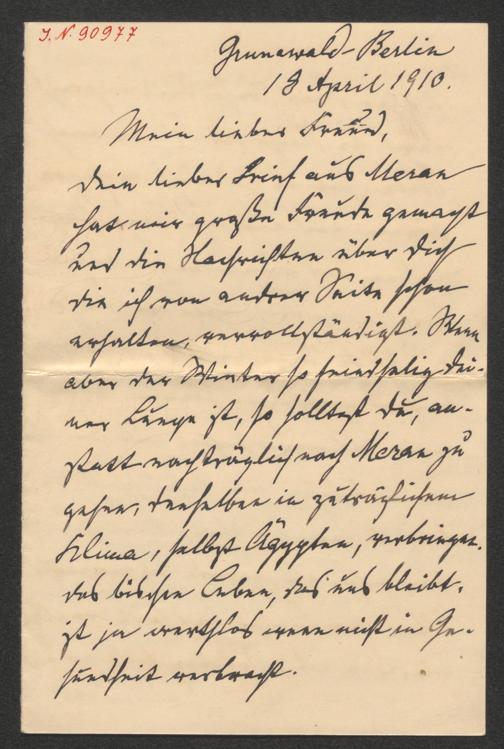 J. N. 90977
Grunewald-Berlin
18 April 1910.
Mein lieber Freund,
dein lieber Brief aus Meran
hat mir große Freude gemacht
und die Nachrichten über dich
die ich von andrer Seite schon
erhalten, vervollständigt. Wenn
aber der Winter so feindselig dei-
ner Lunge ist, so solltest du, an-
statt nachträglich nach Meran zu
gehen, denselben in zuträglichem
Klima, selbst Ägypten, verbringen.
das bischen Leben, das uns bleibt,
ist ja werthlos wenn nicht in Ge-
sundheit verbracht.